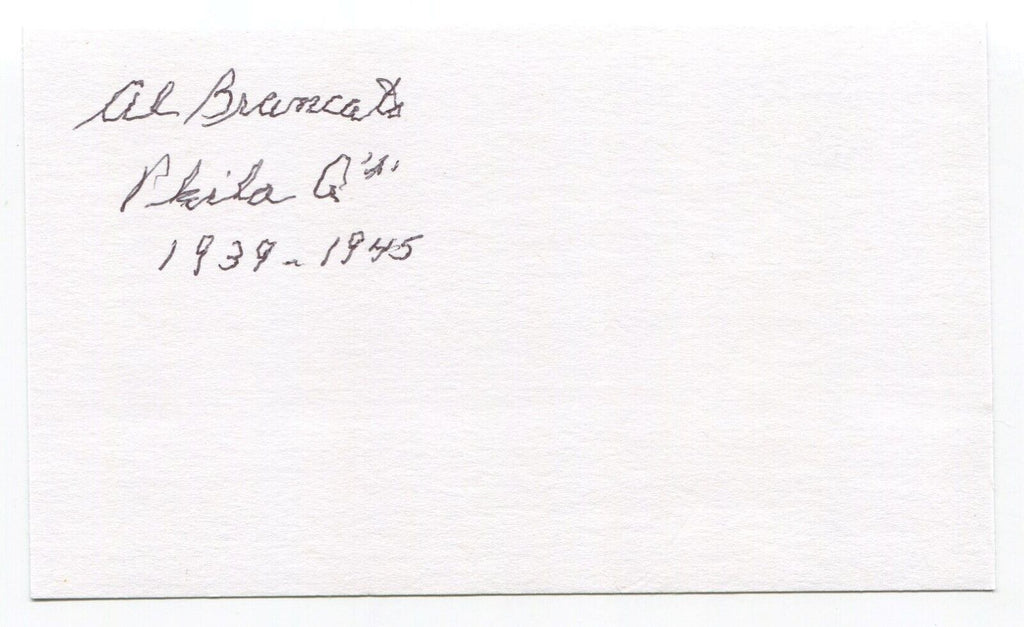 Al Brancato
Phila A's
1939-1945